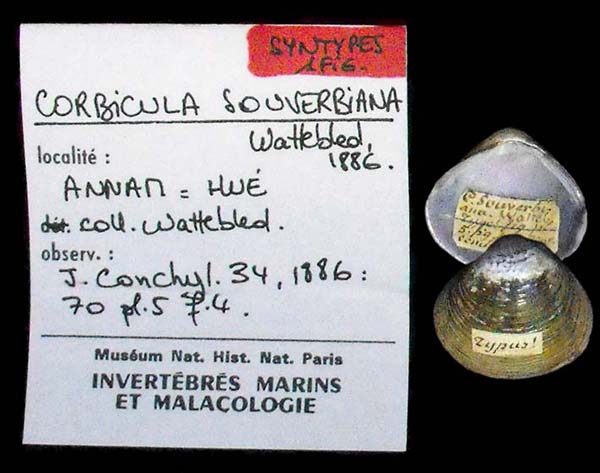 SYNTYPES
1 FIG.
CORBICULA SOUVERBIANA
Wattebled,
1886.
localité :
ANNAM = HUÉ
dét. coll. Wattebled.
observ. :
J. Conchyl. 34, 1886 :
70 pl.5 f.4.
Muséum Nat. Hist. Nat. Paris
INVERTÉBRÉS MARINS
ET MALACOLOGIE
C. souverbi
ana. Watteb
Typus!